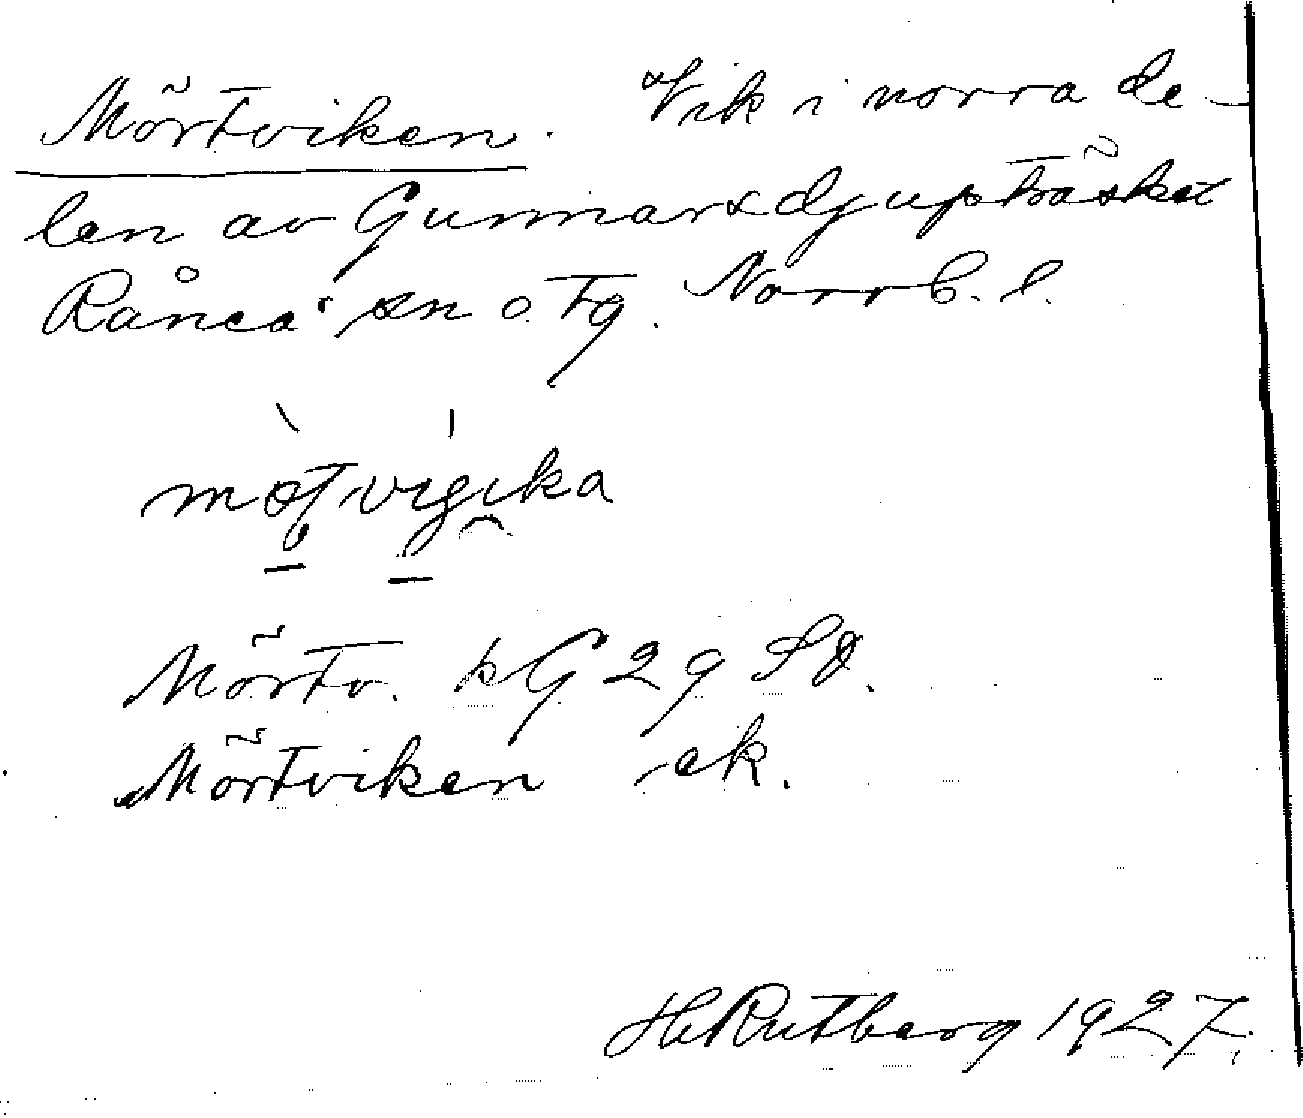 Mörtviken. Vik i norra de-
len av Gunnarsdjupträsket
Råneå sn o. tg. Norrb. l.
Mörtv.
Mörtviken ek.
H Rutberg 1927.